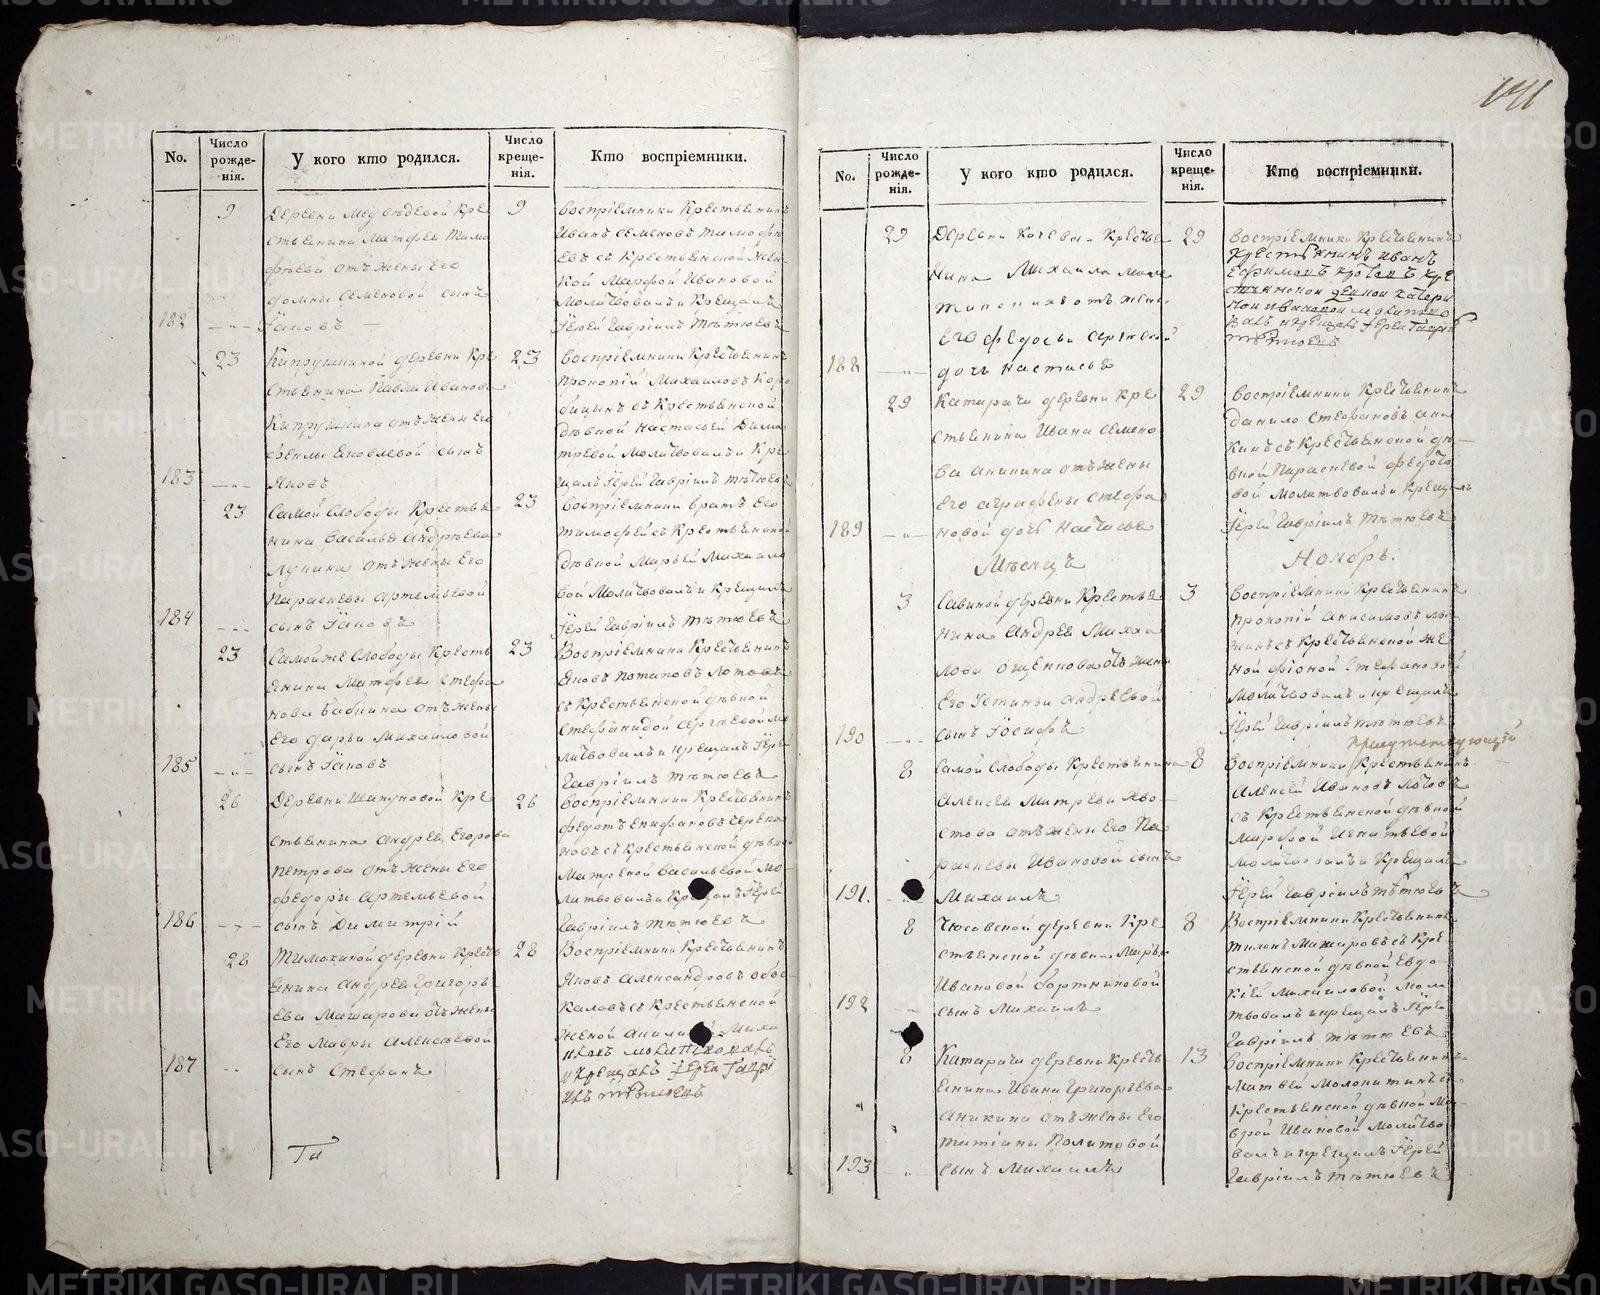 141
No.
Число рожде- нія.
У кого кто родился.
Число креще- нія.
Кто воспріемники.
9
Деревни Медведевой Кре
стьянина Матфея Тимо
фѣева отъ жены его
домны Семеновой сынъ
182
Іаковъ
9
Воспріемники Крестьянинъ
Иванъ Семеновъ Тимофѣ
евъ съ Крестьянской жен
кой Марфой Ивановой
Молитвовалъ и Крещалъ
Іерей Гавріилъ Тѣтюевъ
23
Кипрушиной деревни Кре
стьянина Павла Иванова
Кипрушина отъ жены его
феклы Яковлевой сынъ
183
Яковъ
23
Воспріемники Крестьянинъ
Прокопій Михаиловъ Коро
бицынъ съ Крестьянской
дѣвкой Настасьей Дими
тревой Молитвовалъ и Кре
щалъ Іерей Гавріилъ Тѣтюевъ
23
Самой Слободы Крестья
нина Василья Андрѣева
Лунина отъ жены его
Парасковьи Артемьевой
184
сынъ Іаковъ
23
Воспріемники братъ его
Тимофей съ Крестьянской
дѣвкой Марьей Михаило
вой Молитвовалъ и Крещалъ
Іерей Гавріилъ Тѣтюевъ
23
Самой же Слободы Кресть
янина Матфея Стефа
нова Бабкина отъ жены
его дарьи Михаиловой
185
сынъ Іаковъ
23
Воспріемники Крестьянинъ
Яковъ Потаповъ
съ Крестьянской дѣвкой
Стефанидой Сергѣевой Мо
литвовалъ и Крещалъ Іерей
Гавріилъ Тѣтюевъ
26
Деревни Шипуновой Кре
стьянина Андрея Егорова
Петрова отъ жены его
федоры Артемьевой
186
сынъ Димитрій
26
Воспріемники Крестьянинъ
федотъ Епифановъ Черепа
новъ съ Крестьянской дѣвкой
Матреной Васильевой Мо
литвовалъ и Крещалъ Іерей
Гавріилъ Тѣтюевъ
28
Тимохиной деревни Кресть
янина Андрея Григорь
ева Машарова отъ жены
его Мавры Алексѣевой
187
сынъ Стефанъ
28
Воспріемники Крестьянинъ
Яковъ Александровъ
съ Крестьянской
женой
молитвовалъ
и Крещалъ Іерей Гаврі
илъ Тѣтюевъ
No.
Число рожде- нія.
У кого кто родился.
Число креще- нія.
Кто воспріемники.
29
Деревни Крестья
нина Михаила
отъ жены
его федосьи Сергѣевой
188
дочь Настасья
29
Воспріемники Крестьянинъ
Крестьянинъ Иванъ
Ефимовъ съ кре
стьянской женкой Катери
ной Ивановой молитво
валъ и крещалъ Іерей Гавріилъ
Тѣтюевъ
29
Катарачи деревни Кре
стьянина Ивана Семено
ва Аникина отъ жены
его Аграфены Стефа
189
новой дочь Настасья
29
Воспріемники Крестьянинъ
данило Стефановъ Ани
кинъ съ Крестьянской дѣ
вкой Парасковой федото
вой Молитвовалъ и Крещалъ
Іерей Гавріилъ Тѣтюевъ
Мѣсяцъ
Ноябрь.
3
Савиной деревни Крестья
нина Андрея Михаи
лова Ощепкова отъ жены
его Устиньи Андреевой
190
сынъ Іосифъ
3
Воспріемники Крестьянинъ
Прокопій Анисимовъ
съ Крестьянской же
ной Стефановой
Молитвовалъ и Крещалъ
Іерей Гавріилъ Тѣтюевъ
8
Самой Слободы Крестьянина
Алексея
отъ жены его Па
расковьи Ивановой сынъ
191.
Михаилъ
8
Воспріемники Крестьянинъ
Алексей Ивановъ
съ Крестьянской дѣвкой
Марфой Игнатьевой
Молитвовалъ и Крещалъ
Іерей Гавріилъ Тѣтюевъ
8
Чюсовской деревни Кре
стьянской дѣвки Марьи
Ивановой Бортниковой
192
сынъ Михаилъ
8
Воспріемники Крестьянинъ
Тихонъ Машаровъ съ Кре
стьянской дѣвкой Евдо
кіей Михаиловой Моли
твовалъ и крещалъ Іерей
Гавріилъ Тѣтюевъ
8
Катарачи деревни Кресть
янина Ивана Григорьева
Аникина отъ жены его
Татіаны Политовой
193
сынъ Михаилъ
13
Воспріемники Крестьянинъ
Матвей съ
Крестьянской дѣвкой Ма
врой Ивановой Молитво
валъ и крещалъ Іерей
Гавріилъ Тѣтюевъ